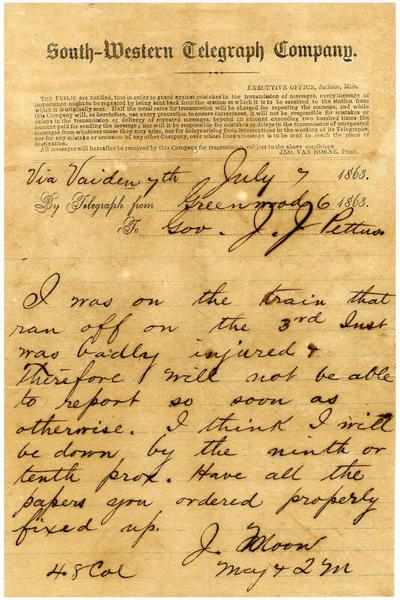 South-Western Telegraph Company.
EXECUTIVE OFFICE, Jackson, Miss.
THE PUBLIC are notified, that in order to guard against mistakes in the transmission of messages, every message of
importance ought to be repeated by being sent back from the station at which it is to be received to the station from
which it is originally sent. Half the usual rates for transmission will be charged for repeating the message, and while
this Company will, as heretofore, use every precaution to ensure correctness, it will not be responsible for mistakes or
delays in the transmission or delivery of repeated messages, beyond an amount exceeding two hundred times the
amount paid for sending the message; nor will it be responsible for mistakes or delays in the transmission of unrepeated
messages from whatever cause they may arise, nor for delays arising from interruptions in the working of its Telegraphs,
nor for any mistake or omission of any other Company, over whose lines a message is to be sent to reach the place of
destination.
All messages will hereafter be received by this Company for transmission, subject to the above conditions.
JNO. VAN HORNE, Pres't.
Via Vaiden 7th July 7 1863.
By Telegraph from Greenwood 6 1863.
To Gov. J. J Pettus.
I was on the train that
ran off on the 3rd Inst
was badly injured &
therefore will not be able
to report so soon as
otherwise. I think I will
be down by the ninth or
tenth prox. Have all the
papers you ordered properly
fixed up.
J. Moon
48 Col
May & 2 M